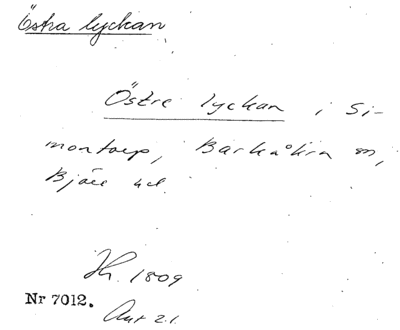 Östra lyckan
Östre lyckan i Si-
montorp, Barkåkra sn,
Bjäre hd.
1809
Nr 7012.